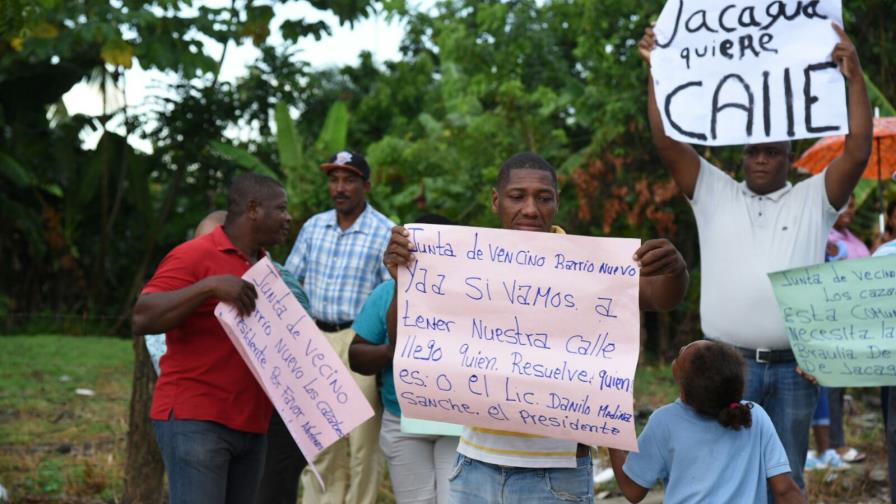 Junta de vecino
Barrio Nuevo Los cazabes
Presidente Por Favor
Junta de Vencino Barrio Nuevo
yaa Si Vamos. a
tener Nuestra calle
llego quien. Resuelve; quien
es: o el Lic. Danilo Medina
Sanche. el Presidente
Jacagua
quiere
CAllE
Junta de Vecino
Los caza
Esta comun
Necesita la
Braulia De
De Jacag